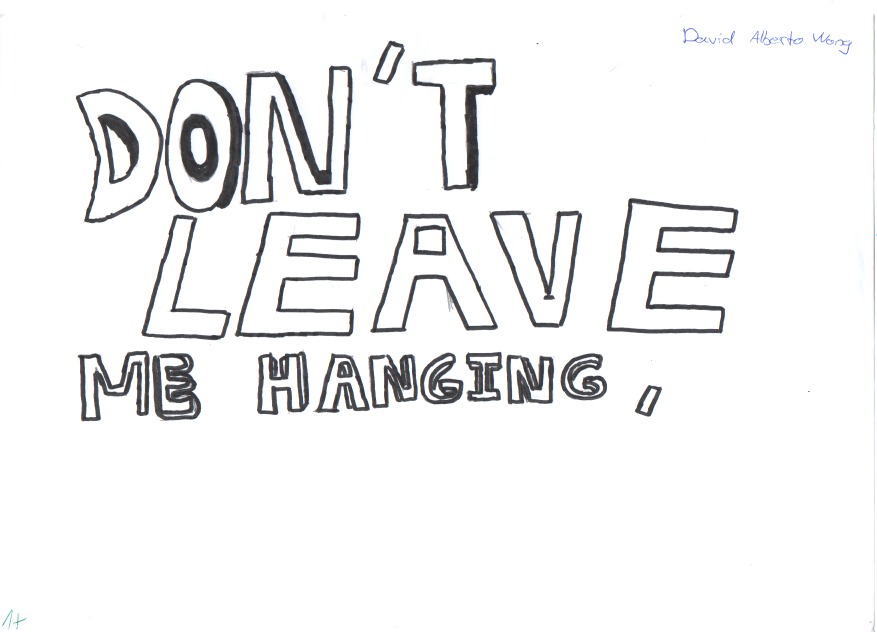 David Alberto Wong
DON'T
LEAVE
ME HANGING,
1+